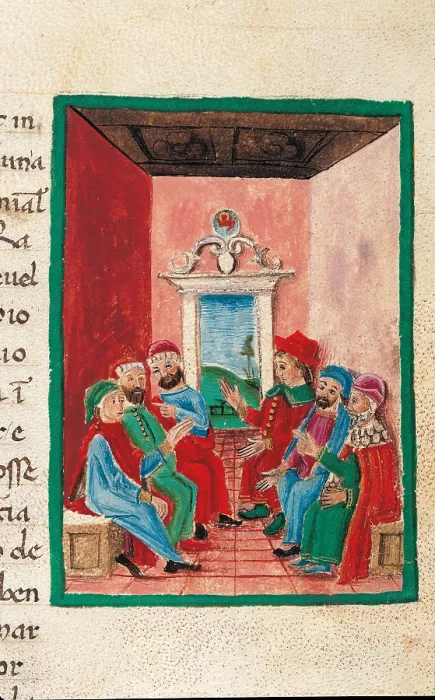 r in
una
nial
Ra
evel
pio
uo
a ī
r e
osse
cia
o de
ben
nar
or